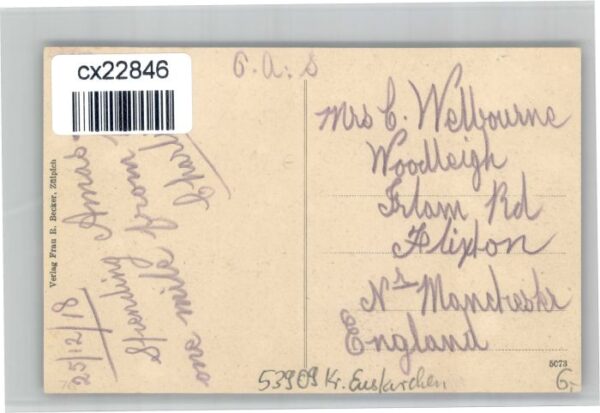 cx22846
O.A.S
25/12/18
Spending Xmas
one mile from
Verlag Frau R. Becker, Zülpich
Mrs C. Welbourne
Woodleigh
Irlam Rd
Flixton
Nr Manchester
England
5073
53909 Kr. Euskirchen
6,-